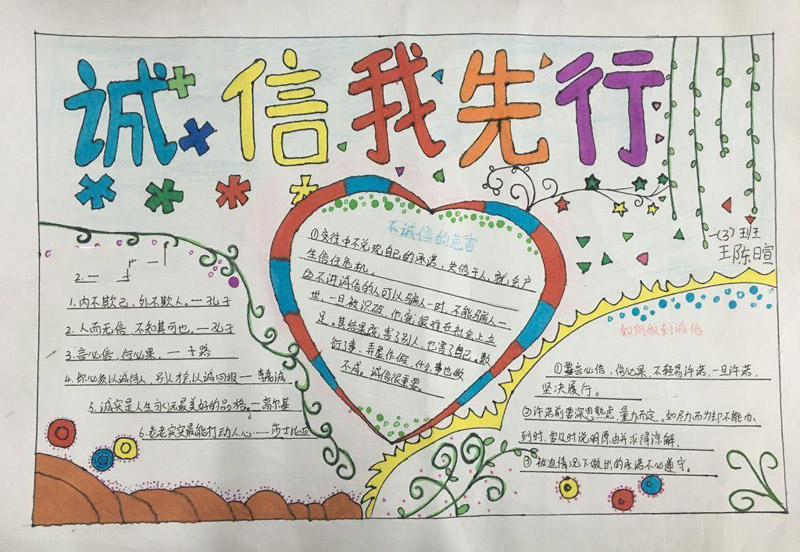 诚信我先行
一(3)班
王陈暄
不诚信的危害
①交往中不兑现自己的承诺、失信于人,就会产
生信任危机
②不讲诚信的人可以骗人一时,不能骗人一
世,一旦被识破,他就很难在社会上立
足。其结果既害了别人,也害了自己。欺
行事、弄虚作假,什么事也做
不成。诚信很重要.
2.一
1.内不欺己,外不欺人。—孔子
2.人而无信,不知其可也。—孔子
3.言必信,行必果。—子路
4.你必须以诚待人,别人才会以诚回报—李嘉诚
5.诚实是人生永远最美好的品格。—高尔基
6.老老实实最能打动人心.—莎士比亚
如何做到诚信
①要言必信,信必果,不轻易许诺,一旦许诺,
坚决履行。
②许诺前要深思熟虑、量力而定。如尽力而却不能办
到时,要及时说明原由并求得谅解.
③被迫情况下做出的承诺不必遵守。